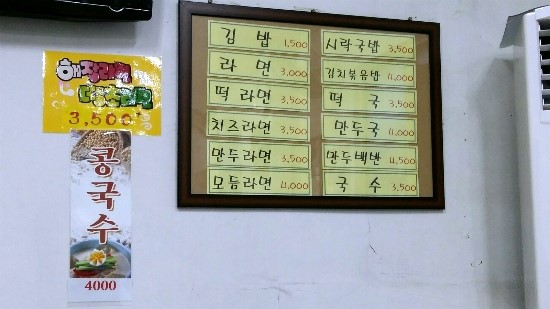 해장라면
3,500
콩국수
4000
김밥 1,500
라면 3,000
떡라면 3,500
치즈라면 3,500
만두라면 3,500
모듬라면 4,000
시락국밥 3,500
김치볶음밥 4,000
떡국 3,500
만두국 4,000
만두백반 4,500
국수 3,500